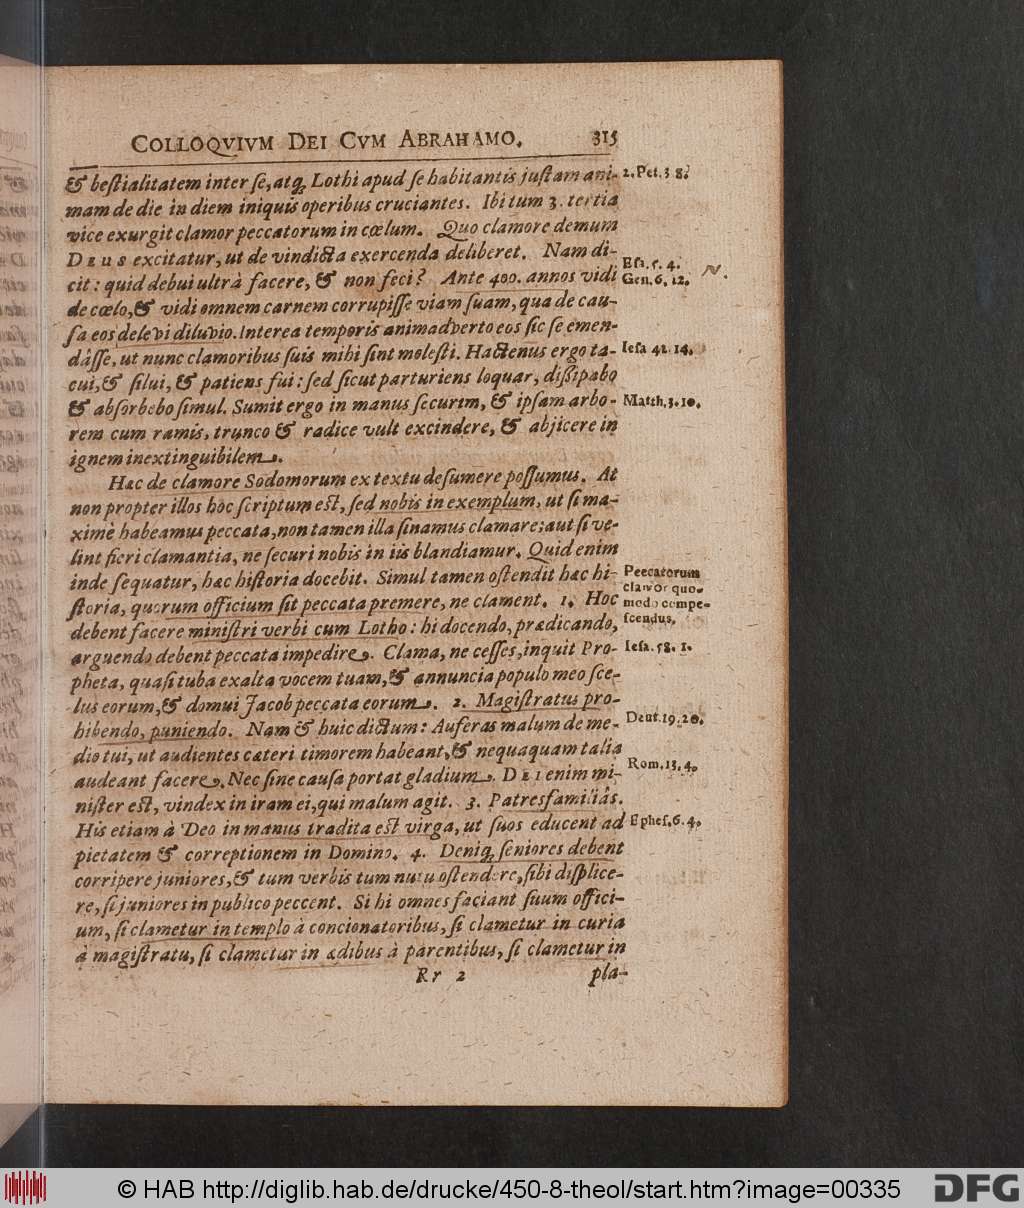 COLLOQVIVM DEI CVM ABRAHAMO. 315
& beſtialitatem inter ſe, atq; Lothi apud ſe habitantis juſtam ani- 2. Pet. 3 8.
mam de die in diem iniquis operibus cruciantes. Ibi tum 3. tertia
vice exurgit clamor peccatorum in cœlum. Quo clamore demum
DEUS excitatur, ut de vindicta exercenda deliberet. Nam di-
cit: quid debui ultrà facere, & non feci? Ante 400. annos vidi Eſa. 5. 4. Gen. 6. 12.
de cœlo, & vidi omnem carnem corrupiſſe viam ſuam, qua de cau-
ſa eos delevi diluvio. Interea temporis animadverto eos ſic ſe emen-
dâſſe, ut nunc clamoribus ſuis mihi ſint moleſti. Hactenus ergo ta- Ieſa 42. 14.
cui, & ſilui, & patiens fui: ſed ſicut parturiens loquar, diſſipabo
& abſorbebo ſimul. Sumit ergo in manus ſecurim, & ipſam arbo- Matth. 3. 10.
rem cum ramis, trunco & radice vult excindere, & abjicere in
ignem inextinguibilem.
Hæc de clamore Sodomorum ex textu deſumere poſſumus. At
non propter illos hoc ſcriptum eſt, ſed nobis in exemplum, ut ſi ma-
ximè habeamus peccata, non tamen illa ſinamus clamare: aut ſi ve-
lint fieri clamantia, ne ſecuri nobis in iis blandiamur. Quid enim
inde ſequatur, hæc hiſtoria docebit. Simul tamen oſtendit hæc hi- Peccatorum
ſtoria, quorum officium ſit peccata premere, ne clament. 1. Hoc clamor quo- modo compe-
debent facere miniſtri verbi cum Lotho: hi docendo, prædicando, ſcendus.
arguendo debent peccata impedire. Clama, ne ceſſes, inquit Pro- Ieſa. 58. 1.
pheta, quaſi tuba exalta vocem tuam, & annuncia populo meo ſce-
lus eorum, & domui Jacob peccata eorum. 2. Magiſtratus pro-
hibendo, puniendo. Nam & huic dictum: Auferas malum de me- Deut. 19. 20.
dio tui, ut audientes cæteri timorem habeant, & nequaquam talia
audeant facere. Nec ſine cauſa portat gladium. DEI enim mi- Rom. 13. 4.
niſter eſt, vindex in iram ei, qui malum agit. 3. Patresfamiliâs.
His etiam à Deo in manus tradita eſt virga, ut ſuos educent ad Epheſ. 6. 4.
pietatem & correptionem in Domino. 4. Deniq; ſeniores debent
corripere juniores, & tum verbis tum nutu oſtendere, ſibi diſplice-
re, ſi juniores in publico peccent. Si hi omnes faciant ſuum offici-
um, ſi clametur in templo à concionatoribus, ſi clametur in curia
à magiſtratu, ſi clametur in ædibus à parentibus, ſi clametur in
Rr 2 pla-
© HAB http://diglib.hab.de/drucke/450-8-theol/start.htm?image=00335 DFG